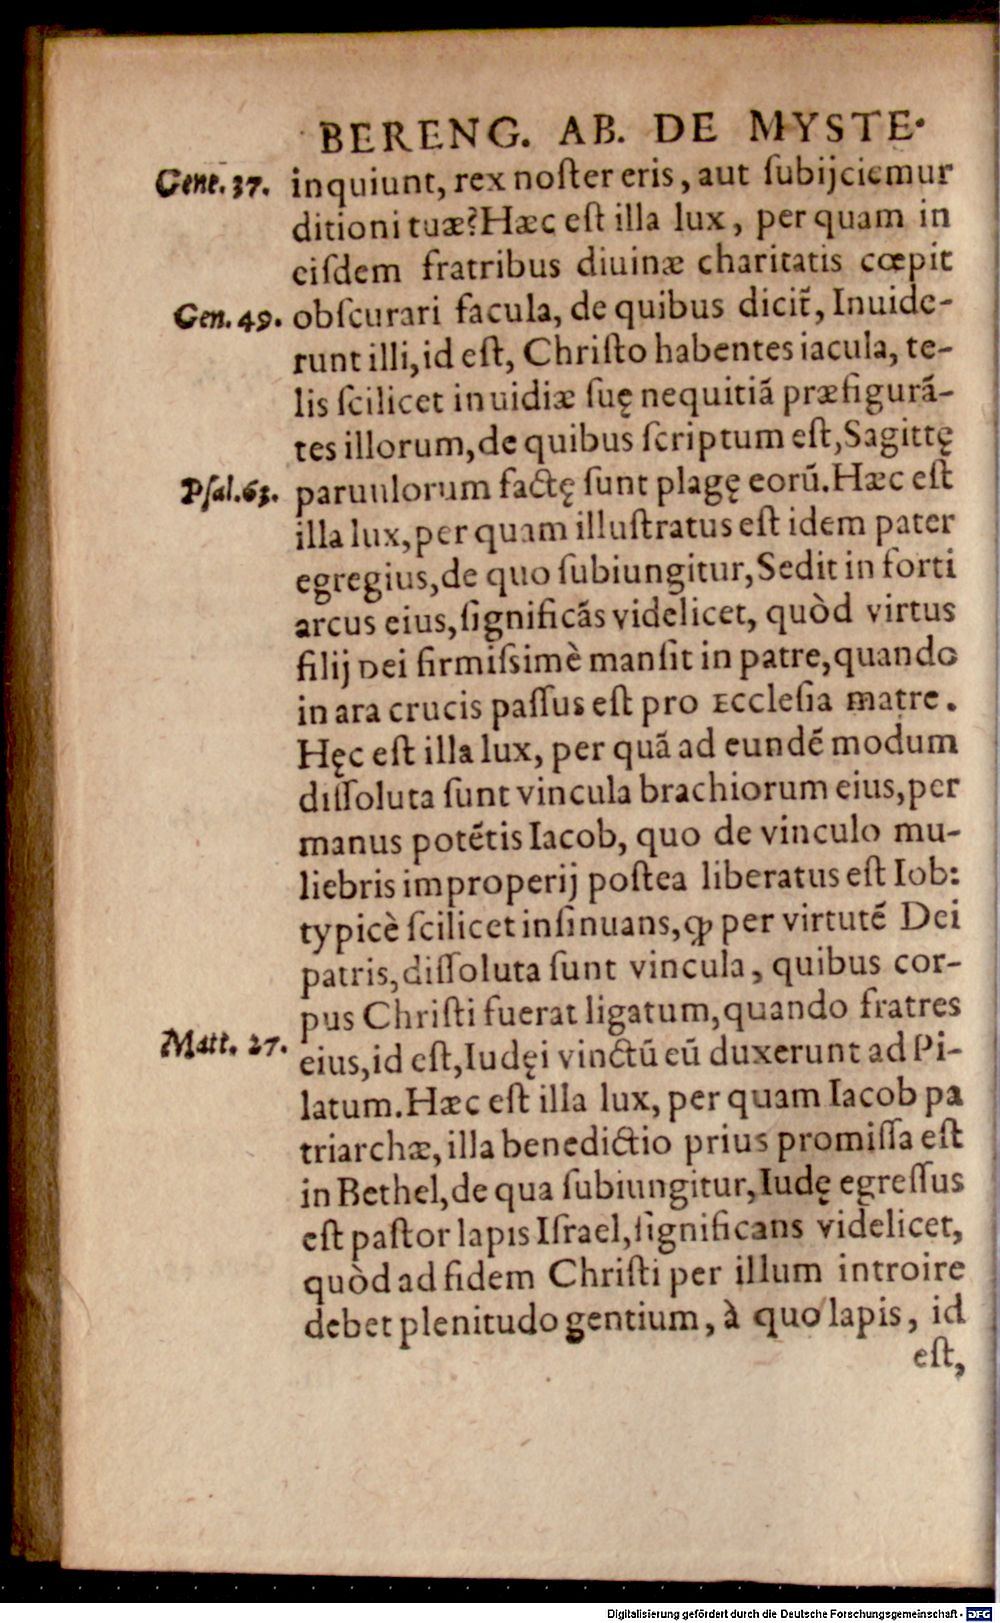 BERENG. AB. DE MYSTE·
Gene. 37. inquiunt, rex noſter eris, aut ſubijciemur
ditioni tuæ? Hæc eſt illa lux, per quam in
eiſdem fratribus diuinæ charitatis cœpit
Gen. 49. obſcurari facula, de quibus dicit̃, Inuide-
runt illi, id eſt, Chriſto habentes iacula, te-
lis ſcilicet inuidiæ ſuę nequitiã præfigurã-
tes illorum, de quibus ſcriptum eſt, Sagittę
Pſal. 63. paruulorum factę ſunt plagę eorũ. Hæc eſt
illa lux, per quam illuſtratus eſt idem pater
egregius, de quo ſubiungitur, Sedit in forti
arcus eius, ſignificãs videlicet, quòd virtus
filij Dei firmiſsimè manſit in patre, quando
in ara crucis paſſus eſt pro Eccleſia matre.
Hęc eſt illa lux, per quã ad eundẽ modum
diſſoluta ſunt vincula brachiorum eius, per
manus potẽtis Iacob, quo de vinculo mu-
liebris improperij poſtea liberatus eſt Iob:
typicè ſcilicet inſinuans, ꝙ per virtutẽ Dei
patris, diſſoluta ſunt vincula, quibus cor-
pus Chriſti fuerat ligatum, quando fratres
Matt. 27. eius, id eſt, Iudęi vinctũ eũ duxerunt ad Pi-
latum. Hæc eſt illa lux, per quam Iacob pa
triarchæ, illa benedictio prius promiſſa eſt
in Bethel, de qua ſubiungitur, Iudę egreſſus
eſt paſtor lapis Iſrael, ſignificans videlicet,
quòd ad fidem Chriſti per illum introire
debet plenitudo gentium, à quo lapis, id
eſt,
Digitalisierung gefördert durch die Deutsche Forschungsgemeinschaft - DFG